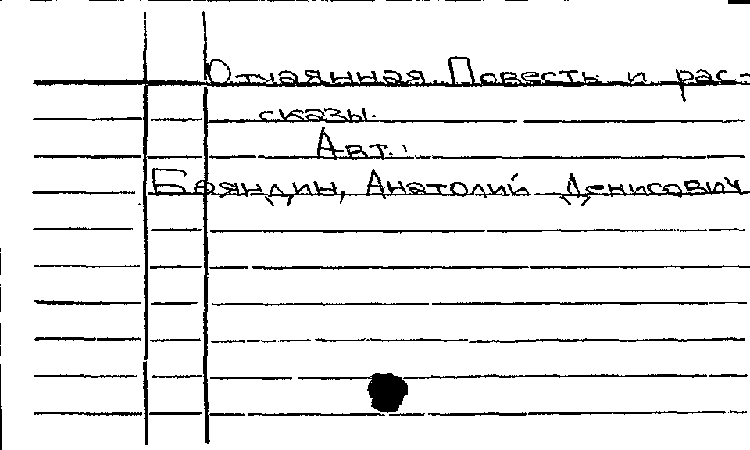 Отчаянная. Повесть и рас-
сказы.
Авт.:
Баяндин, Анатолий Денисович